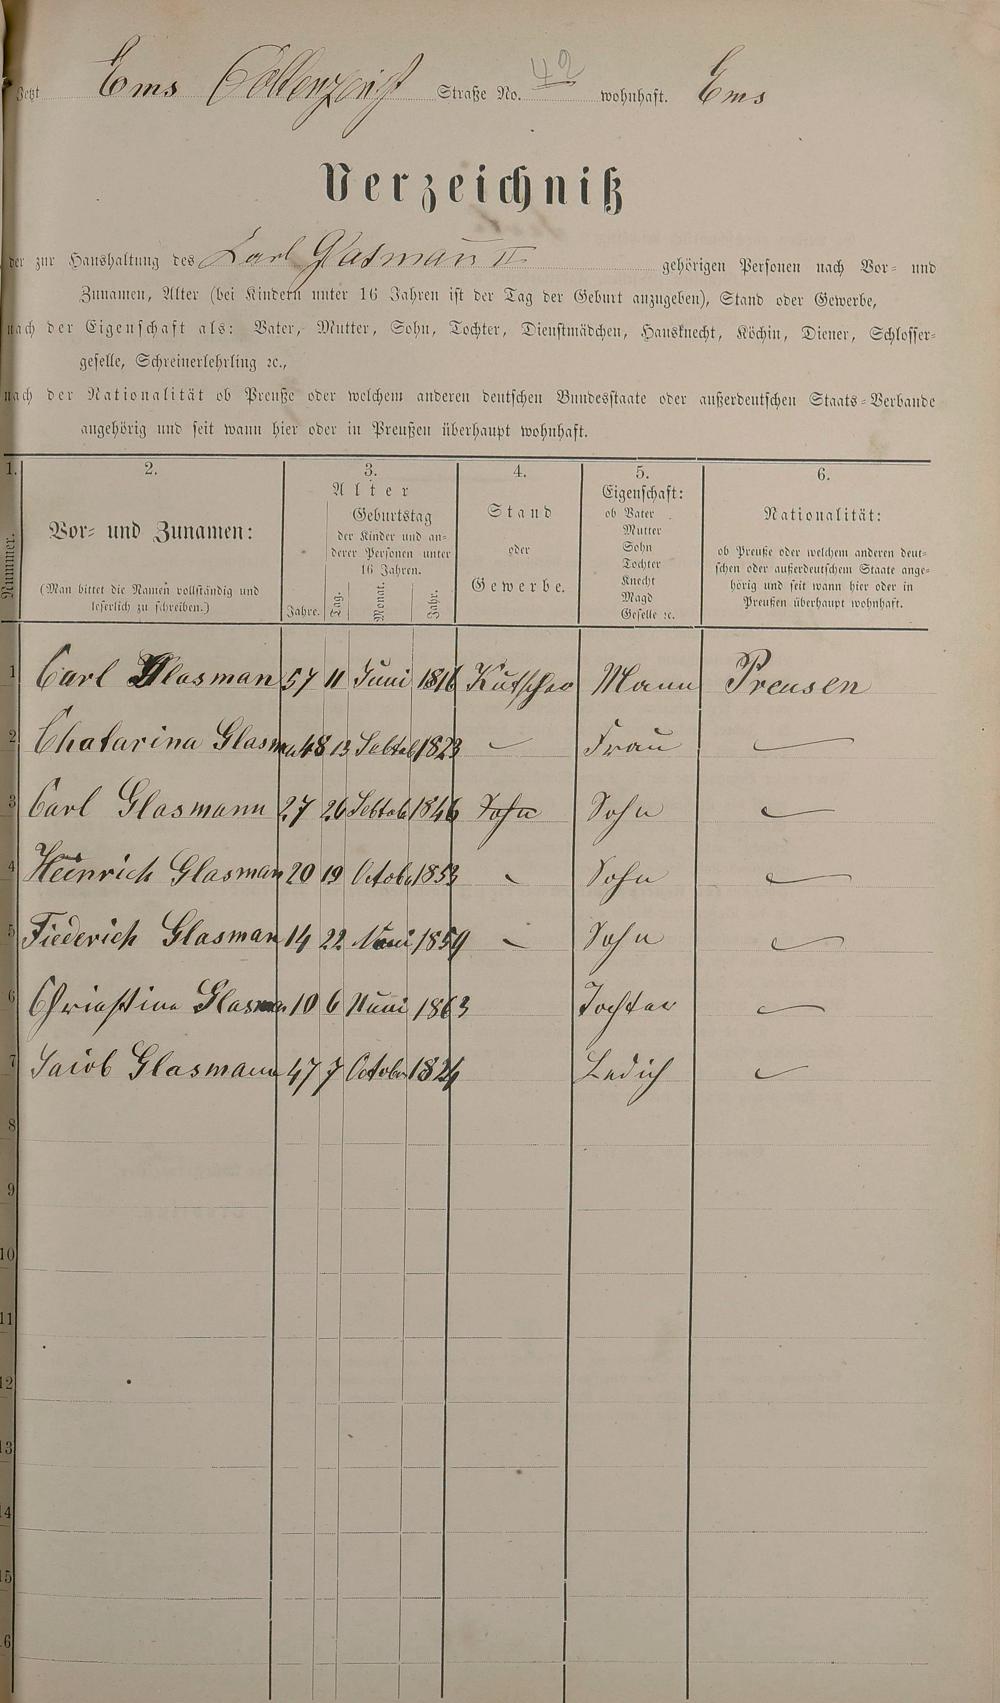 Jetzt Ems Straße No. 42 wohnhaft. Ems
Verzeichniß
der zur Haushaltung des Karl Glasmann II gehörigen Personen nach Vor- und
Zunamen, Alter (bei Kindern unter 16 Jahren ist der Tag der Geburt anzugeben), Stand oder Gewerbe,
nach der Eigenschaft als: Vater, Mutter, Sohn, Tochter, Dienstmädchen, Hausknecht, Köchin, Diener, Schlosser-
geselle, Schreinerlehrling ꝛc.,
nach der Nationalität ob Preuße oder welchem anderen deutschen Bundesstaate oder außerdeutschen Staats-Verbande
angehörig und seit wann hier oder in Preußen überhaupt wohnhaft.
1.
Nummer.
2.
Vor- und Zunamen:
(Man bittet die Namen vollständig und
leserlich zu schreiben.)
3.
Alter
Jahre.
Geburtstag
der Kinder und an-
derer Personen unter
16 Jahren.
Tag.
Monat.
Jahr.
4.
Stand
oder
Gewerbe.
5.
Eigenschaft:
ob Vater
Mutter
Sohn
Tochter
Knecht
Magd
Geselle ꝛc.
6.
Nationalität:
ob Preuße oder welchem anderen deut-
schen oder außerdeutschem Staate ange-
hörig und seit wann hier oder in
Preußen überhaupt wohnhaft.
1 Carl Glasman 57 11 Juni 1816 Kutscher Mann Preusen
2 Chatarina Glasman 48 13 Sebteb 1823 — Frau —
3 Carl Glasmann 27 26 Sebtob 1846 Sohn Sohn —
4 Heinrich Glasman 20 19 Octobr 1853 - Sohn —
5 Fiederich Glasman 14 22 1859 - Sohn —
6 Christina Glasman 10 6 Nuni 1863 Tochter —
7 Jacob Glasmann 47 7 Octobr 1824 Ledich —
8
9
10
11
12
13
14
15
16